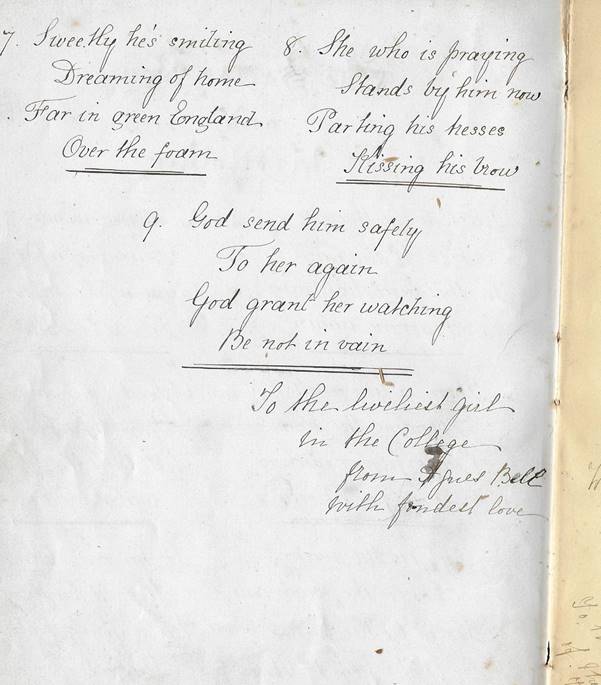 7. Sweetly he's smiling
Dreaming of home
Far in green England
Over the foam
8. She who is praying
Stands by him now
Parting his tresses
Kissing his brow
9. God send him safely
To her again
God grant her watching
Be not in vain
To the liveliest girl
in the College
from Agnes Bell
with fondest love